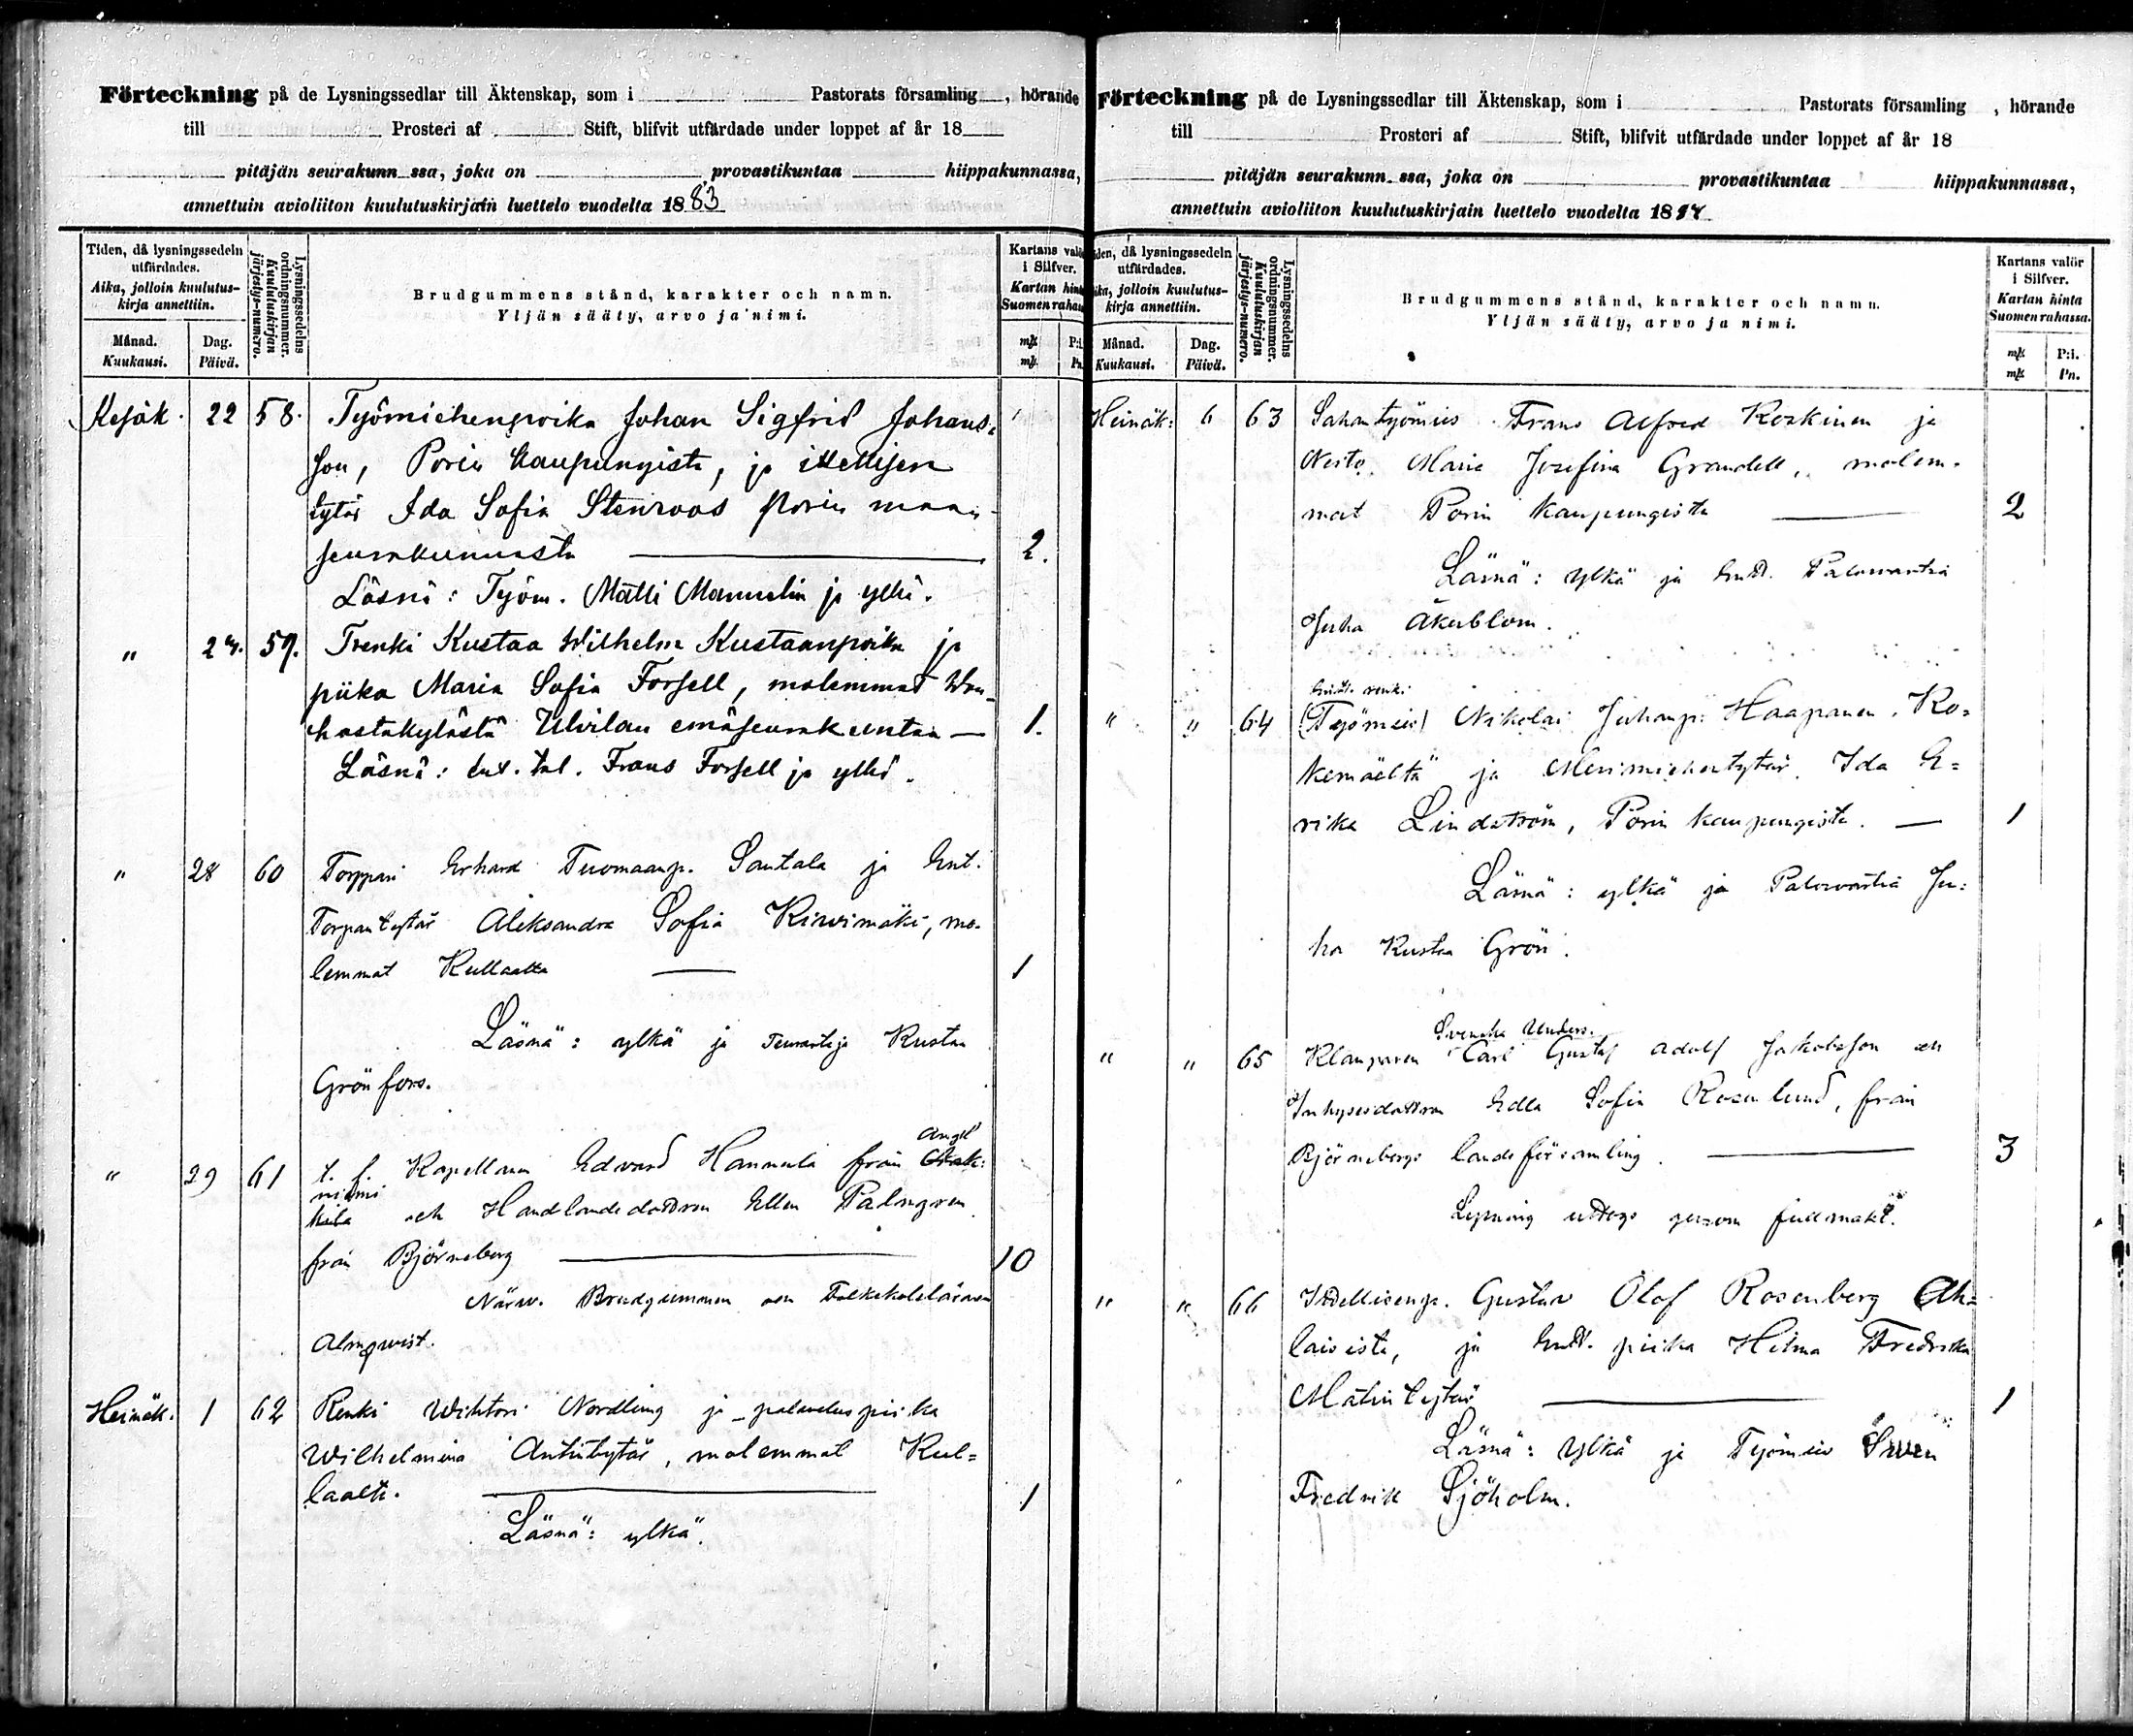 Förteckning på de Lysningssedlar till Äktenskap, som i Pastorats församling, hörande
till Prosteri af Stift, blifvit utfärdade under loppet af år 18
pitäjän seurakunn ssa, joka on provastikuntaa hiippakunnassa,
annettuin avioliiton kuulutuskirjain luettelo vuodelta 1883
Tiden, då lysningssedeln utfärdades.
Aika, jolloin kuulutus-
kirja annettiin.
Månad. Kuukausi.
Dag. Päivä.
Lysningssedelns ordningsnummer.
Kuulutuskirjan järjestys-numero.
Brudgummens stånd, karakter och namn.
Yljän sääty, arvo ja nimi.
Kartans valör
i Silfver.
Kartan hinta
Suomen rahassa
mk P:i.
mk Pn.
Kesäk. 22 58. Työmiehenpoika Johan Sigfrid Johans-
son, Porin kaupungista, ja itsellisen
tytär Ida Sofia Stenroos Porin maa-
seurakunnasta 2.
Läsnä: Työm. Matti Mannelin ja ylkä.
" 24. 59. Trenki Kustaa Wilhelm Kustaanpoika ja
piika Maria Sofia Forsell, molemmat Wan-
hastakylästä Ulvilan emäseurakuntaa — 1.
Läsnä: ent. tal. Frans Forsell ja ylkä.
" 28 60 Torppari Erhard Tuomaanp. Santala ja Ent.
Torpantytär Aleksandra Sofia Kiwimäki, mo-
lemmat Kullaalta 1
Läsnä: ylkä ja Teurastaja Kustaa
Grönfors.
" 29 61 t. f. Kapellanen Edvard Hannula från Angel
niemi och Handlandedottren Ellen Palmgren
från Björneborg 10
Närv. Brudgummen och Folkskoleläraren
Almqvist.
Heinäk. 1 62 Renki Wihtori Nordling ja palveluspiika
Wilhelmina Antintytär, molemmat Kul=
laalta. 1
Läsnä: ylkä.
Förteckning på de Lysningssedlar till Äktenskap, som i Pastorats församling, hörande
till Prosteri af Stift, blifvit utfärdade under loppet af år 18
pitäjän seurakunn ssa, joka on provastikuntaa hiippakunnassa,
annettuin avioliiton kuulutuskirjain luettelo vuodelta 18
Tiden, då lysningssedeln
utfärdades.
Aika, jolloin kuulutus-
kirja annettiin.
Månad. Kuukausi.
Dag. Päivä.
Lysningssedelns ordningsnummer.
Kuulutuskirjan järjestys-numero.
Brudgummens stånd, karakter och namn.
Yljän sääty, arvo ja nimi.
Kartans valör
i Silfver.
Kartan hinta
Suomen rahassa.
mk P:i.
mk Pn.
Heinäk: 6 63 Sahantyömies Frans Alfred Koskinen ja
Neito Maria Josefina Grandell, molem-
mat Porin kaupungista 2
Läsnä: ylkä ja Entt. Palovartia
Juha Åkerblom.
entt. renki
" " 64 (Työmies) Nikolai Juhanp: Haapanen Ko=
kemäeltä ja Merimiehentytär Ida E=
rika Lindström, Porin kaupungista. — 1
Läsnä: ylkä ja Palovartia Ju=
ha Kustaa Grön.
Svenska Unders.
" " 65 Klamparen Carl Gustaf Adolf Jakobsson och
Inhysesdottren Edla Sofia Rosenlund, från
Björneborgs landsförsamling. 3
Lysning uttogs genom fullmakt.
" " 66 Itsellisenp. Gustav Olof Rosenberg Ah=
laisista, ja Entt. piika Hilma Fredrika
Matintytär 1
Läsnä: ylkä ja Työmies Sven
Fredrik Sjöholm.